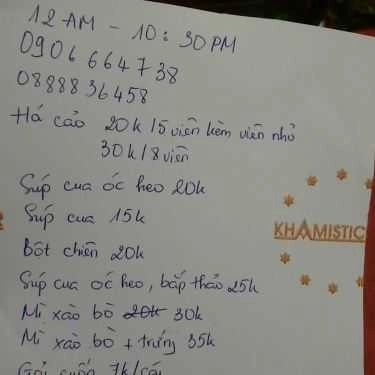 12 AM - 10:30PM
0906 664738
0888836458
Há cảo 20k/5 viên kèm viên nhỏ
30k/8 viên
Súp cua óc heo 20k
Súp cua 15k
KHAMISTIC
Bột chiên 20k
Súp cua óc heo, bắp thảo 25k
Mì xào bò 20k 30k
Mì xào bò + trứng 35k
Gỏi cuốn 7k/cái